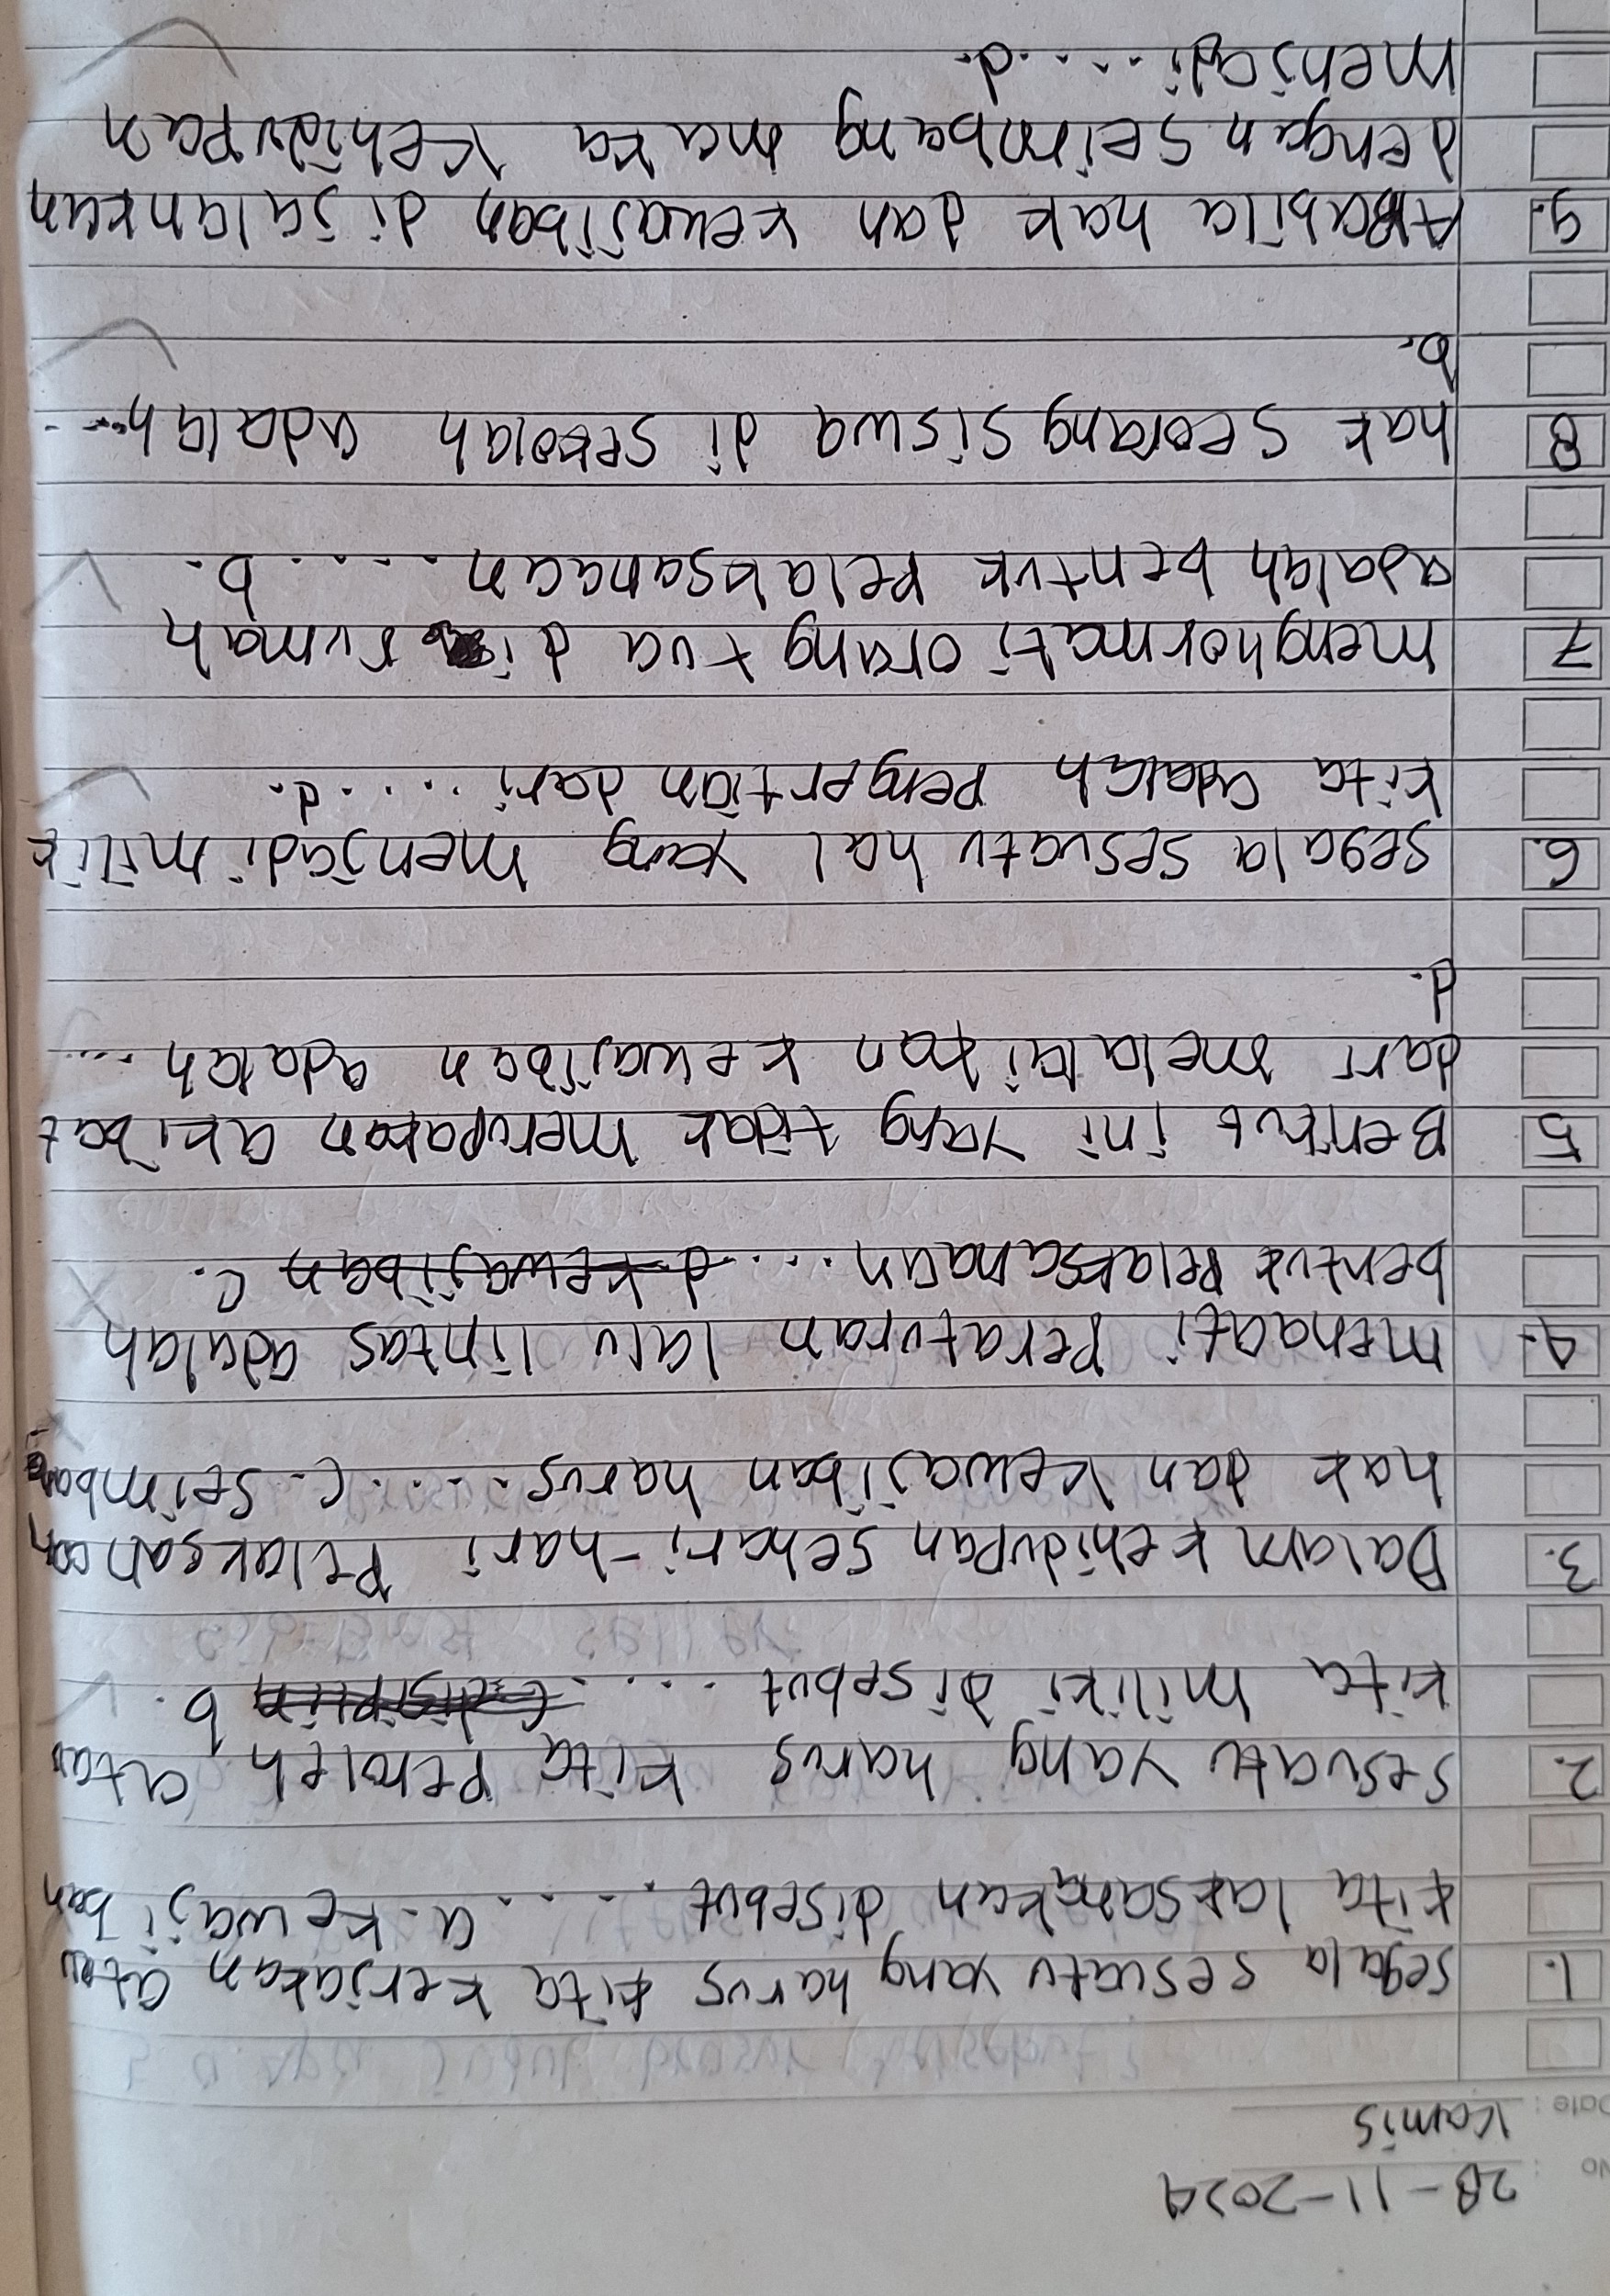 No : 28-11-2024
Date : Kamis
1. segala sesuatu yang harus kita kerjakan atau
kita laksanakan disebut..... a. kewajiban
2. sesuatu yang harus kita peroleh atau
kita miliki disebut .... c. disiplin b.
3. Dalam kehidupan sehari-hari pelaksanaan
hak dan kewajiban harus..... c. Seimbang
4. menaati peraturan lalu lintas adalah
bentuk pelaksanaan... d. kewajiban C.
5 Berikut ini yang tidak merupakan akibat
dari melalaikan kewajiban adalah ....
d.
6. segala sesuatu hal yang menjadi milik
kita adalah pengertian dari ..... d.
7 menghormati orang tua di rumah
adalah bentuk pelaksanaan..... b.
8 hak seorang siswa di sekolah adalah....
b.
9. Apabila hak dan kewajiban dijalankan
dengan seimbang maka kehidupan
menjadi ..... d.